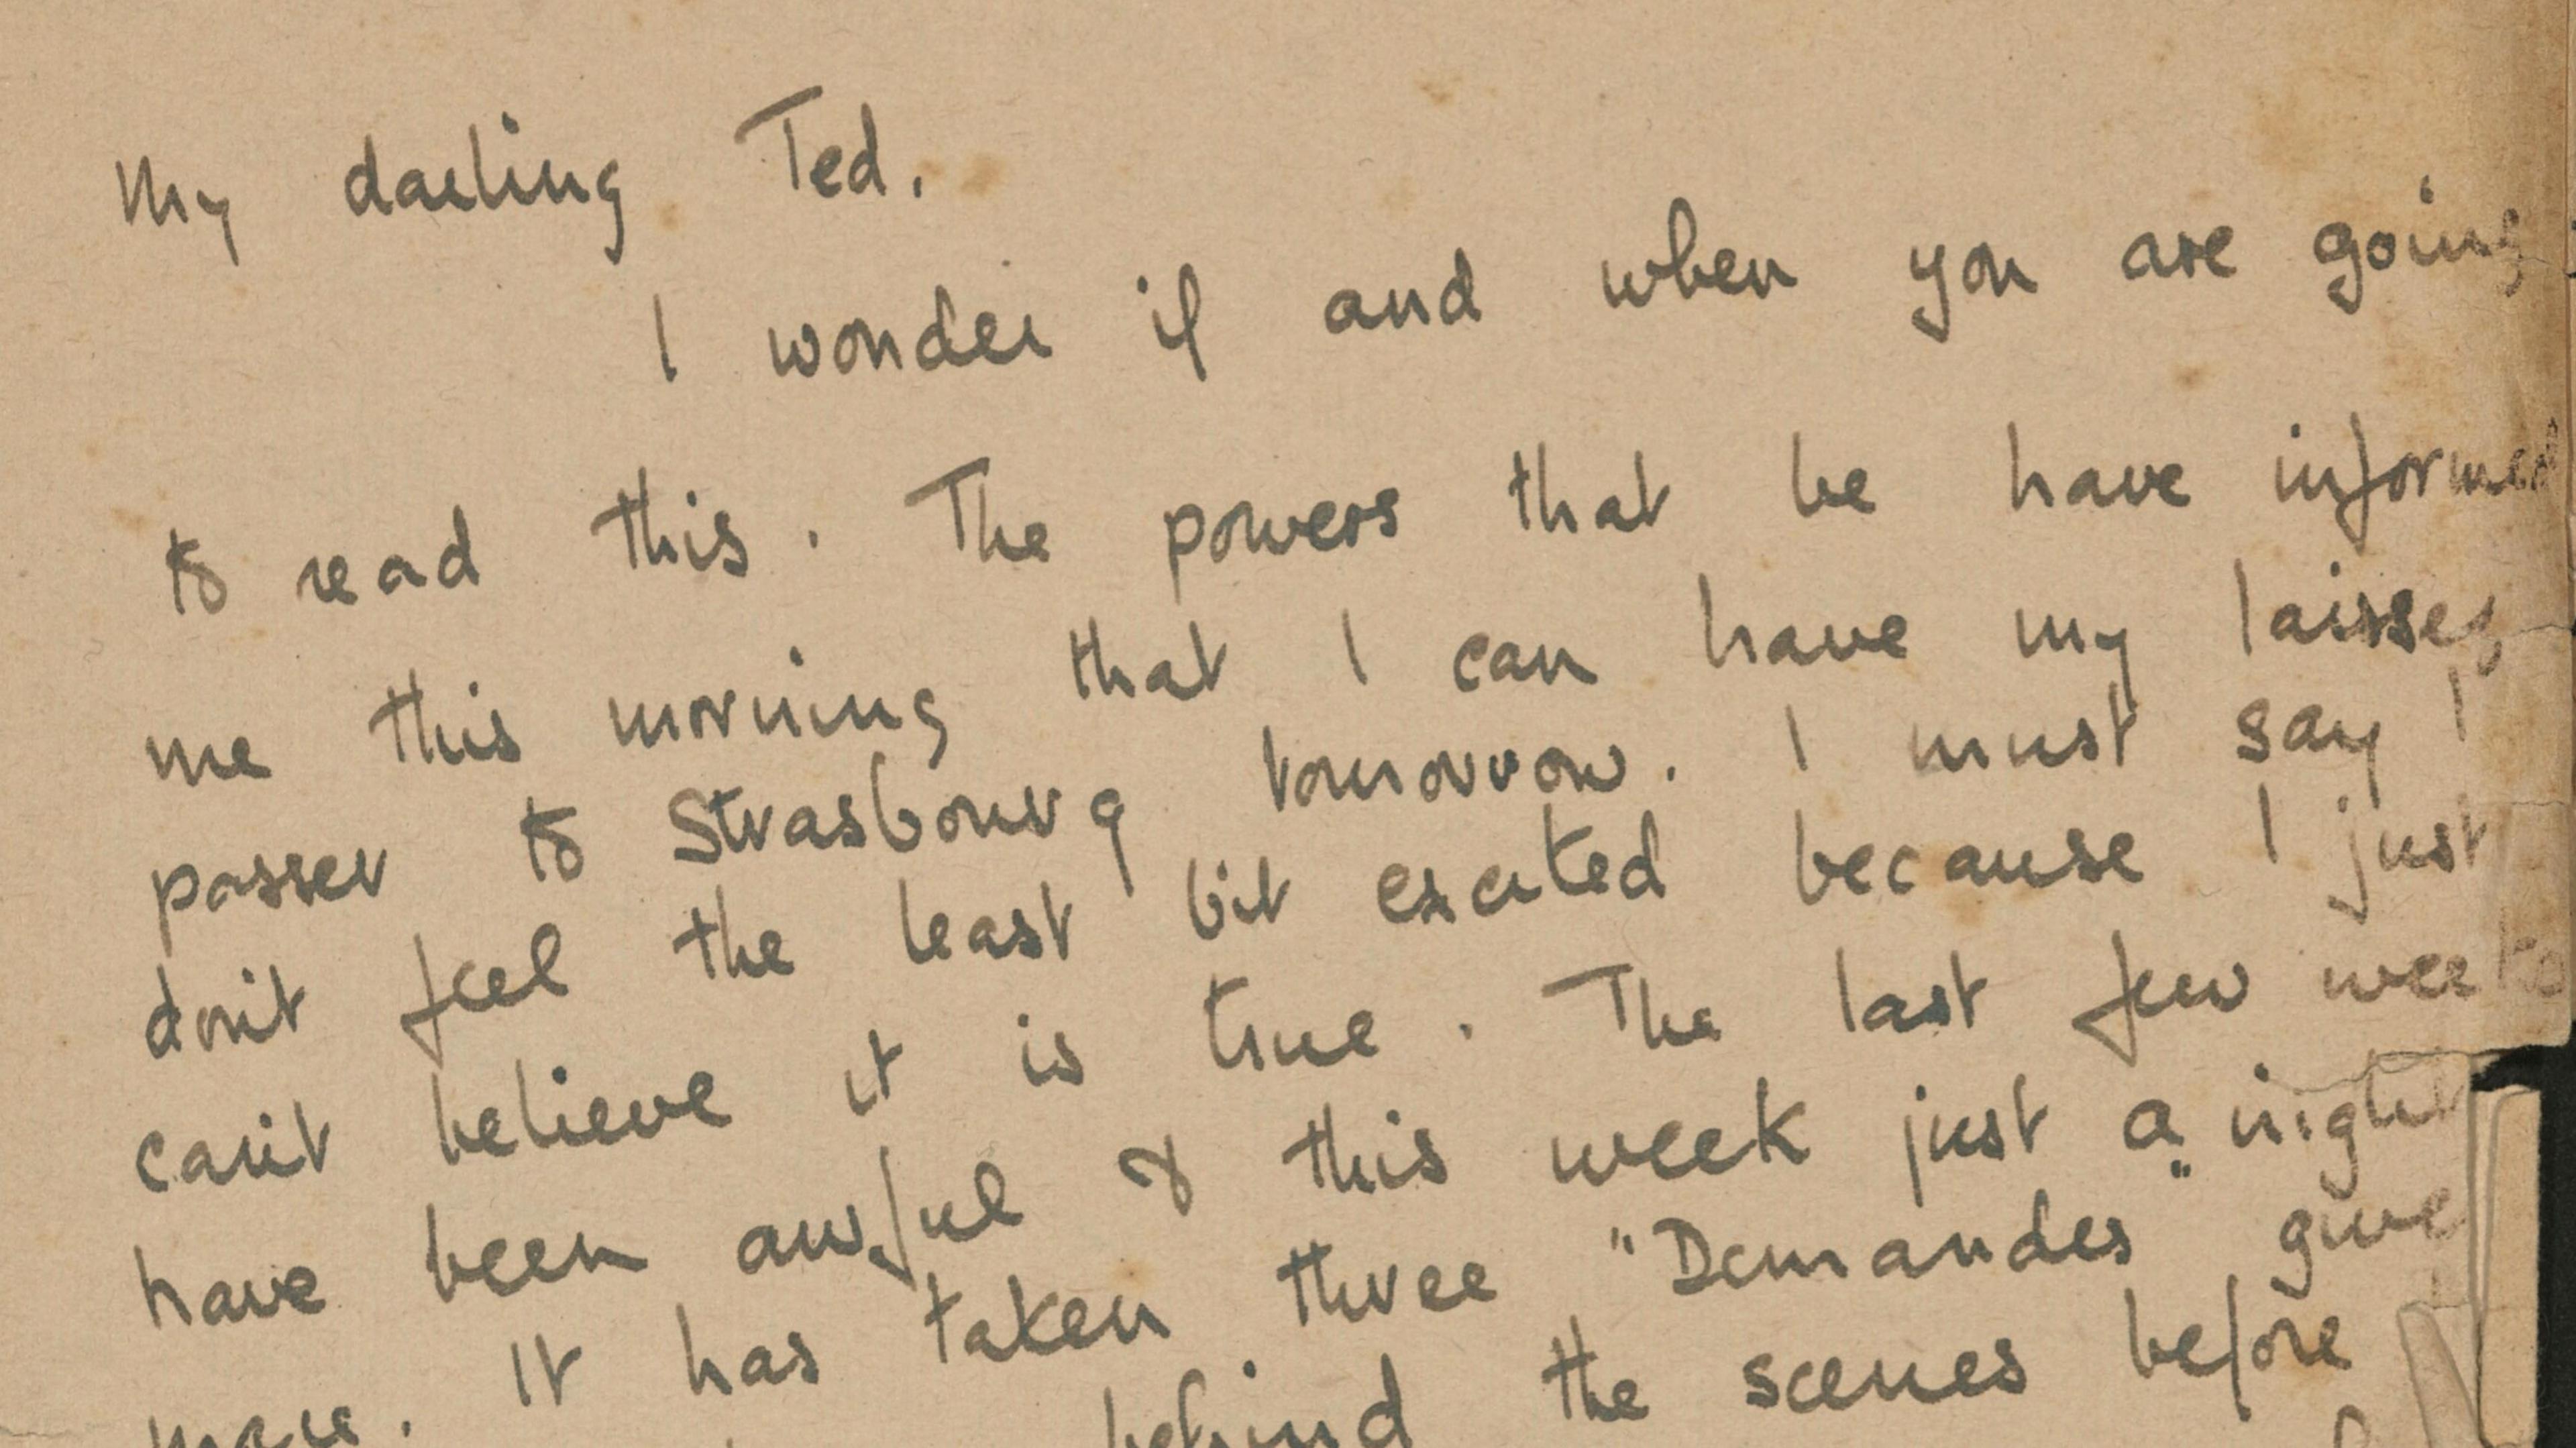 My darling Ted.
I wonder if and when you are going
to read this. The powers that be have informed
me this morning that I can have my laissez
passer to Strasbourg tomorrow. I must say I
don't feel the least bit excited because I just
can't believe it is true. The last few weeks
have been awful & this week just a night
mare. It has taken three "Demandes" give
behind the scenes before